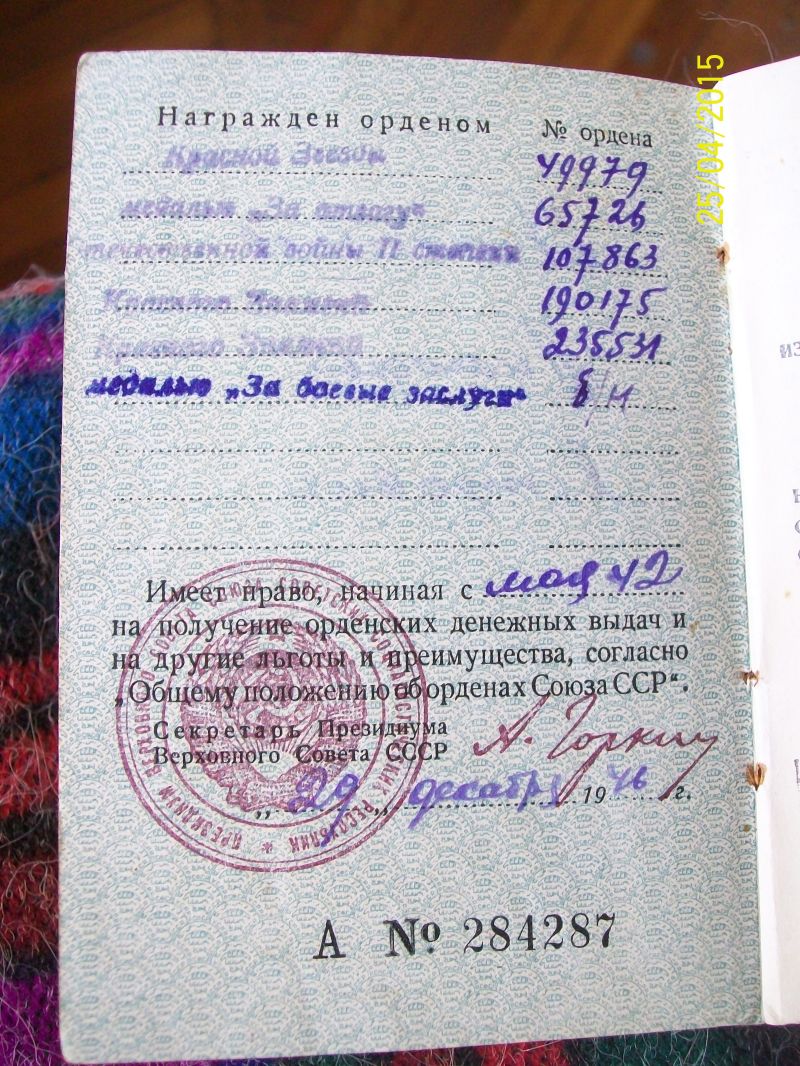 25/04/2015
Награжден орденом № ордена
Красной Звезды 49979
медалью „За отвагу“ 65726
Отечественной войны II степени 107863
Красного Знамени 190175
Красного Знамени 235531
медалью „За боевые заслуги“ б/н
Имеет право, начиная с мая 42
на получение орденских денежных выдач и
на другие льготы и преимущества, согласно
„Общему положению об орденах Союза ССР“.
Секретарь Президиума
Верховного Совета СССР А. Горкин
„29„ декабря 1946 г.
А № 284287
из